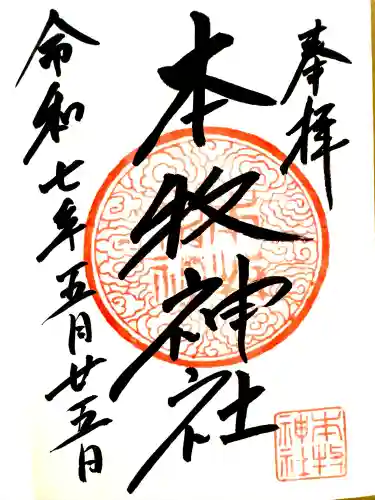 奉拝
本牧神社
令和七年五月廿五日
本牧
神社